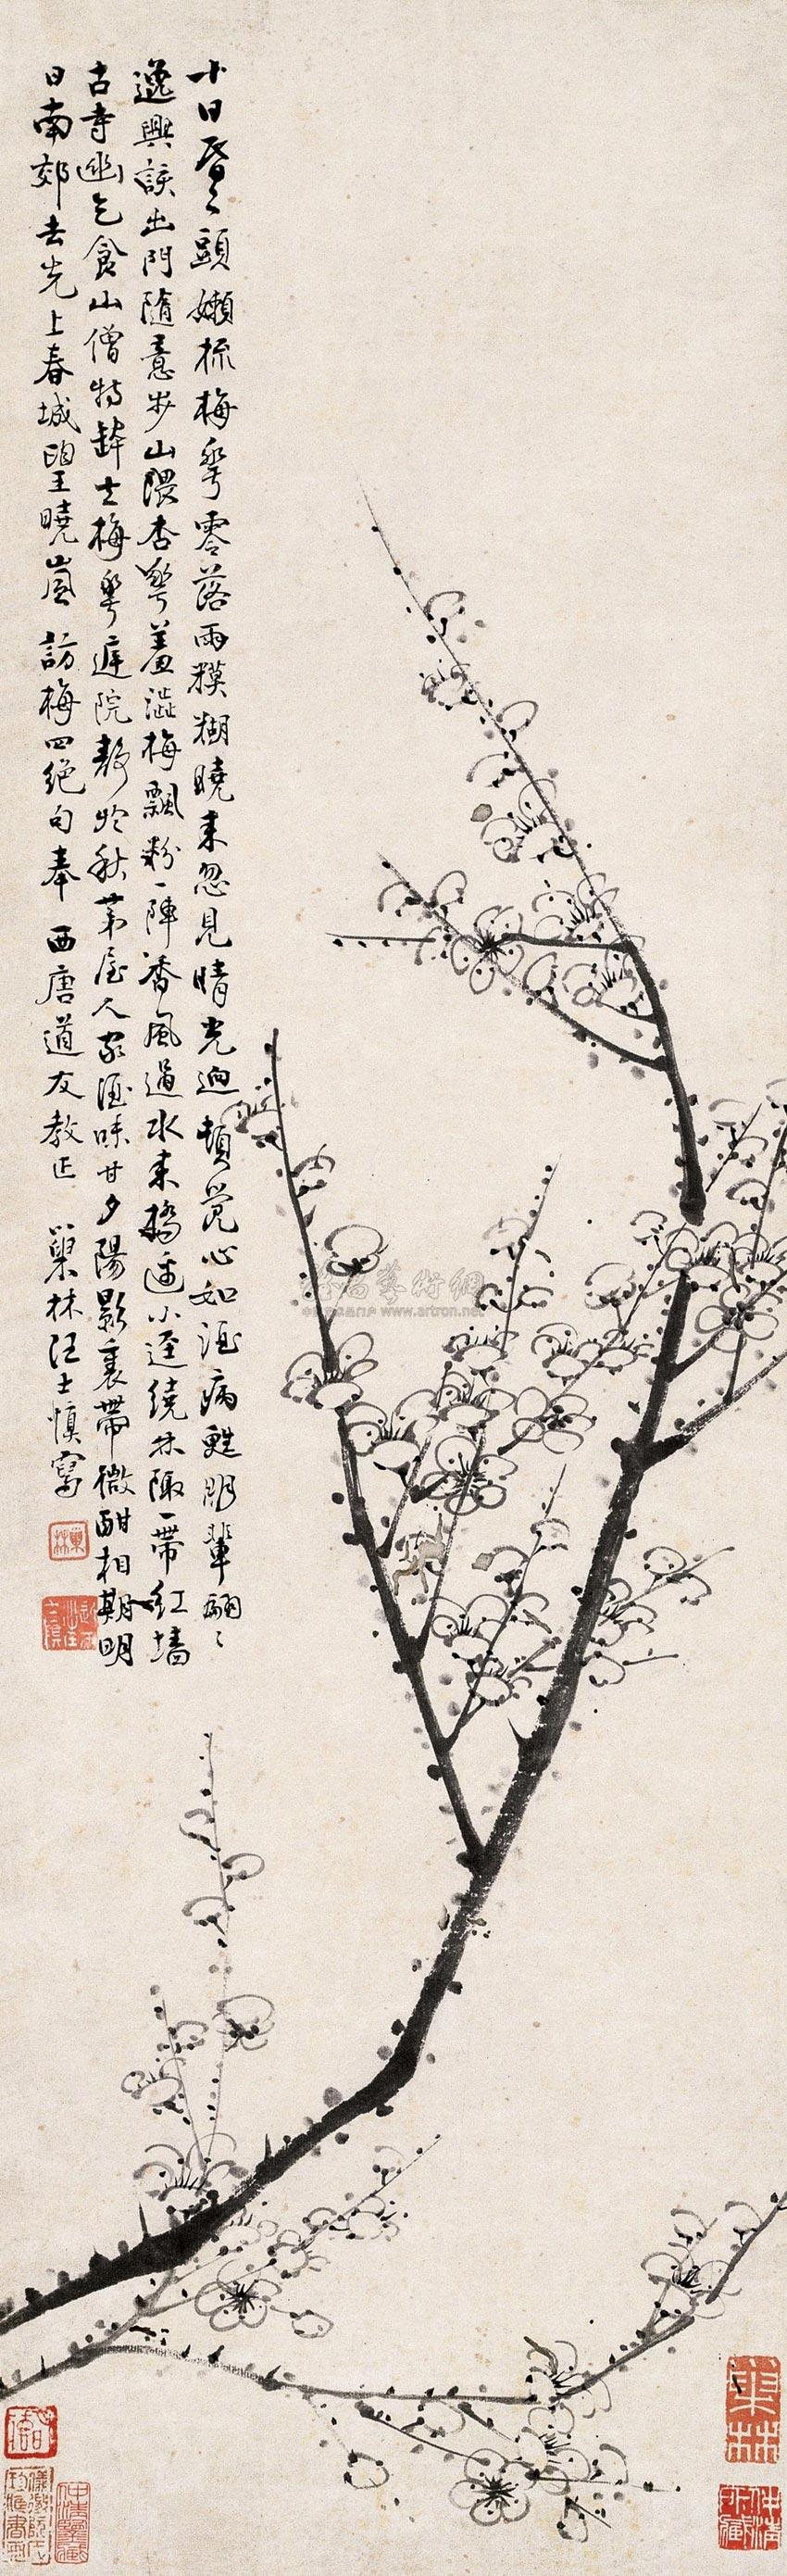 十日昏〻頭嬾梳梅華零落雨糢糊曉来忽見晴光迥頓覺心如酒病甦朋輩翩〻
逸興誇出門隨意步山隈杏華羞澁梅飄粉一陣香風過水来橋邊小逕繞林陬一帶紅墻
古寺幽乞食山僧特缽去梅華遅院静於秋茅屋人家酒味甘夕陽影裏帶微酣相期明
日南郊去先上春城望曉嵐 訪梅四絶句奉 西唐道友教正 巢林汪士慎寫
巢林
www.artron.net